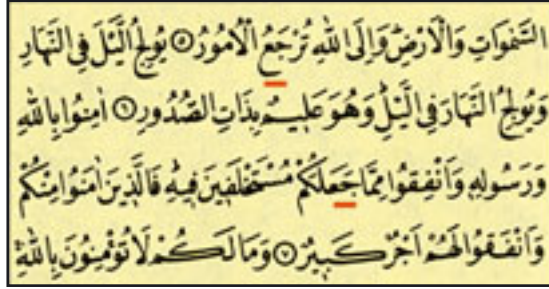 السَّمٰوَاتِ وَالْاَرْضِۜ وَاِلَى اللّٰهِ تُرْجَعُ الْاُمُورُ ﴿٥﴾ يُولِجُ الَّيْلَ فِي النَّهَارِ
وَيُولِجُ النَّهَارَ فِي الَّيْلِۜ وَهُوَ عَل۪يمٌ بِذَاتِ الصُّدُورِ ﴿٦﴾ اٰمِنُوا بِاللّٰهِ
وَرَسُولِه۪ وَاَنْفِقُوا مِمَّا جَعَلَكُمْ مُسْتَخْلَف۪ينَ ف۪يهِۜ فَالَّذ۪ينَ اٰمَنُوا مِنْكُمْ
وَاَنْفَقُوا لَهُمْ اَجْرٌ كَب۪يرٌ ﴿٧﴾ وَمَا لَكُمْ لَا تُؤْمِنُونَ بِاللّٰهِۚ